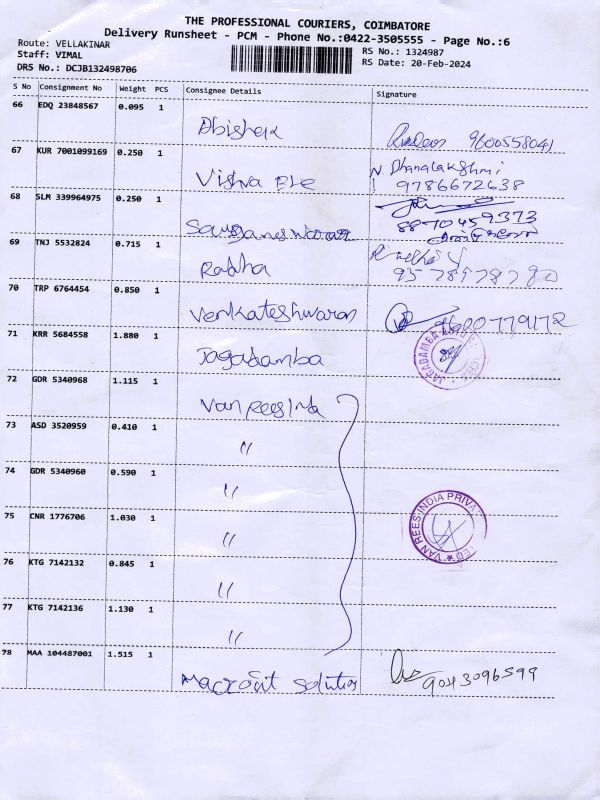 THE PROFESSIONAL COURIERS, COIMBATORE
Delivery Runsheet - PCM - Phone No.:0422-3505555 - Page No.:6
Route: VELLAKINAR
Staff: VIMAL
DRS No.: DCJB132498706
RS No.: 1324987
RS Date: 20-Feb-2024
S No Consignment No Weight PCS Consignee Details Signature
66 EDQ 23848567 0.095 1
Abishek 9600558041
67 KUR 7001099169 0.250 1
N. Dhanalakshmi
Vishva Ele 9786672638
68 SLM 339964975 0.250 1
8870459373
69 TNJ 5532824 0.715 1
Radha
70 TRP 6764454 0.850 1
Venkateshwaran 9600779172
71 KRR 5684558 1.880 1
Jagadamba
72 GDR 5340968 1.115 1
Van Rees India
73 ASD 3520959 0.410 1
"
74 GDR 5340960 0.590 1
"
VAN REES INDIA PRIVA
75 CNR 1776706 1.030 1
"
76 KTG 7142132 0.845 1
"
77 KTG 7142136 1.130 1
"
78 MAA 104487001 1.515 1
Macrofit Solution 9043096599